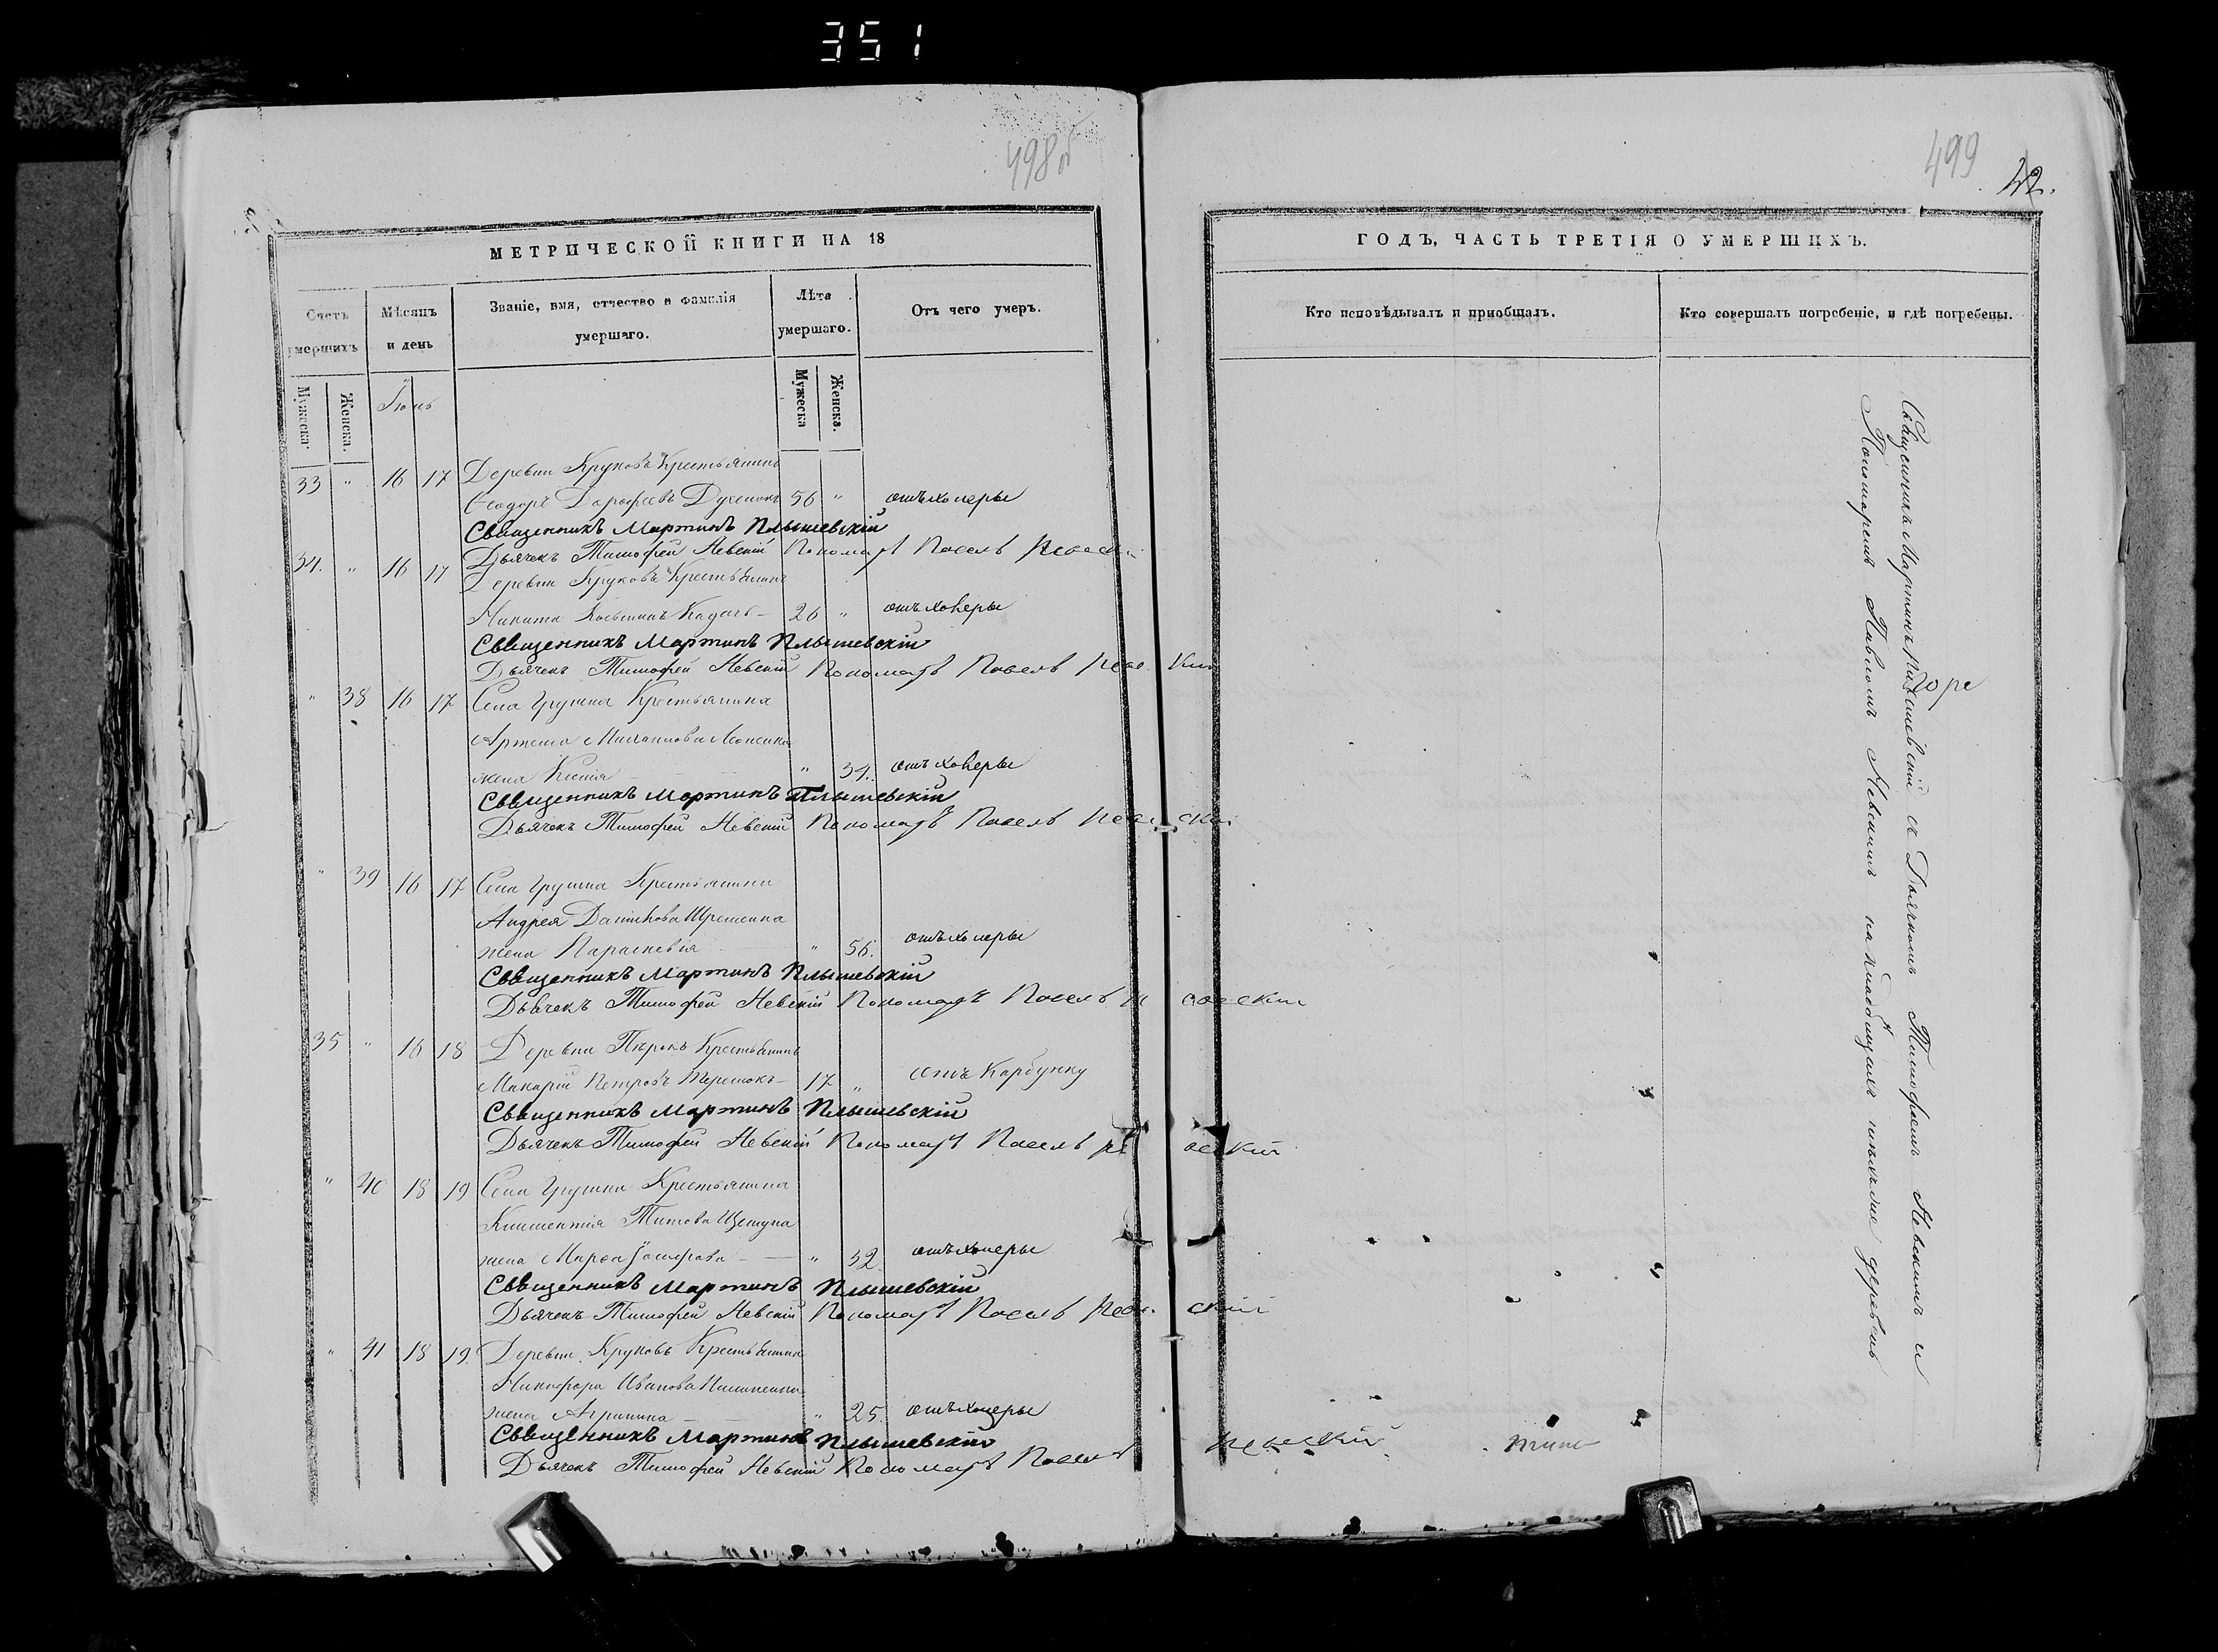 351
498об
МЕТРИЧЕСКОЙ КНИГИ НА 18
Счетъ умершихъ
Мѣсяцъ и день
Званіе, имя, отчество и фамилія умершаго.
Лѣта умершаго.
Отъ чего умеръ.
Мужеска
Женска.
Мужеска
Женска.
Іюнь
33 " 16 17 Деревни Круковъ Крестьянинъ
Ѳеодоръ Дорофеевъ 56 " отъ холеры
Священникъ Мартинъ Плышевскій
Дьячекъ Тимофей Невскій Пономарь Павелъ Невскій
34. " 16 17 Деревни Круковъ Крестьянинъ
Никита 26 " отъ холеры
Священникъ Мартинъ Плышевскій
Дьячекъ Тимофей Невскій Пономарь Павелъ Невскій
" 38 16 17 Села Грушна Крестьянина
жена " 34. отъ холеры
Священникъ Мартинъ Плышевскій
Дьячекъ Тимофей Невскій Пономарь Павелъ Невскій
" 39 16 17 Села Грушна Крестьянина
Андрея
жена Параскевія " 56. отъ холеры
Священникъ Мартинъ Плышевскій
Дьячекъ Тимофей Невскій Пономарь Павелъ Невскій
35 " 16 18 Деревни Крестьянинъ
Макарій Петровъ 17 " отъ Карбунку
Священникъ Мартинъ Плышевскій
Дьячекъ Тимофей Невскій Пономарь Павелъ Невскій
" 40 18 19 Села Грушна Крестьянина
Климентія Титова
жена Марѳа " 32 отъ холеры
Священникъ Мартинъ Плышевскій
Дьячекъ Тимофей Невскій Пономарь Павелъ Невскій
" 41 18 19. Деревни Круковъ Крестьянина
Никифора Иванова
жена Агрипина " 25. отъ холеры
Священникъ Мартинъ Плышевскій
Дьячекъ Тимофей Невскій Пономарь Павелъ Невскій
499
42.
ГОДЪ, ЧАСТЬ ТРЕТІЯ О УМЕРШИХЪ.
Кто исповѣдывалъ и пріобщалъ.
Кто совершалъ погребеніе, и гдѣ погребены.
Священникъ Мартинъ Плышевскій съ Дьячкомъ Тимофеемъ Невскимъ и
Пономаремъ Павломъ Невскимъ на кладбищахъ